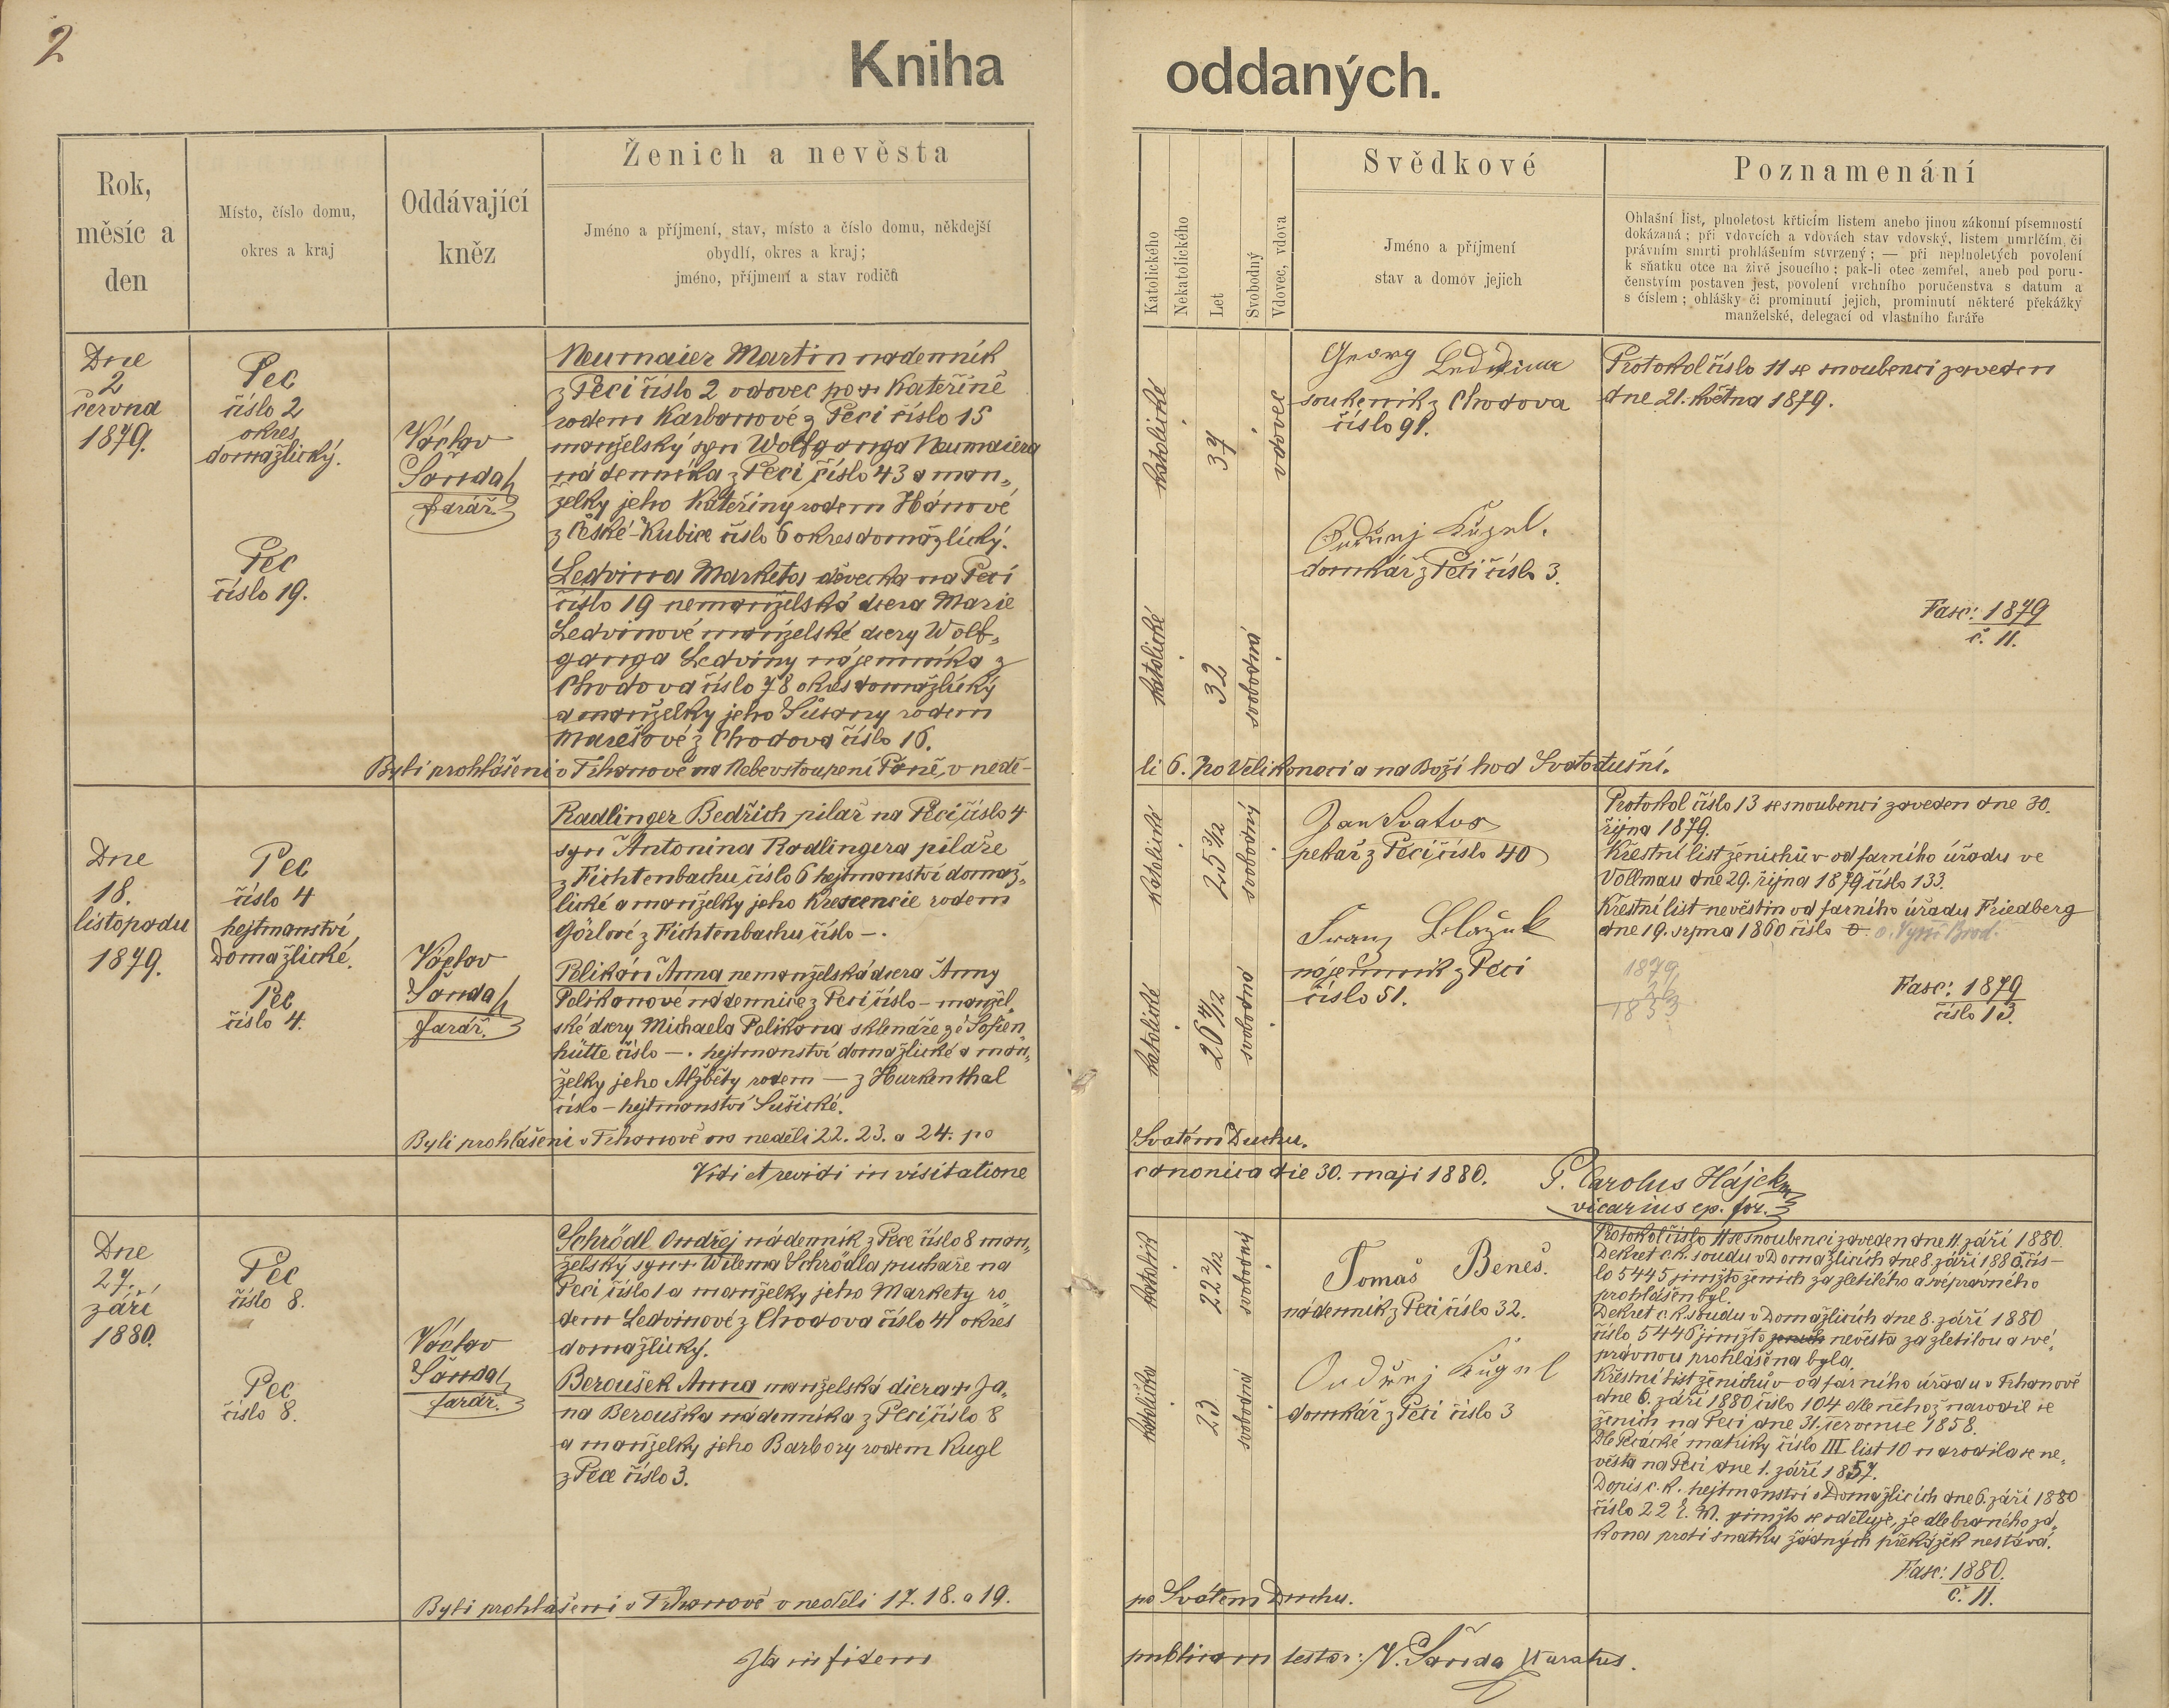 2
Kniha oddaných.
Rok, měsíc a den
Místo, číslo domu, okres a kraj
Oddávající kněz
Ženich a nevěsta
Jméno a příjmení, stav, místo a číslo domu, někdejší
obydlí, okres a kraj;
jméno, příjmení a stav rodičů
Katolického
Nekatolického
Let
Svobodný
Vdovec, vdova
Svědkové
Jméno a příjmení
stav a domov jejich
Poznamenání
Ohlašní list, plnoletost křticím listem anebo jinou zákonní písemností
dokázaná; při vdovcích a vdovách stav vdovský, listem umrlčím, či
právním smrti prohlášením stvrzený; — při neplnoletých povolení
k sňatku otce na živě jsoucího; pak-li otec zemřel, aneb pod poru-
čenstvím postaven jest, povolení vrchního poručenstva s datum a
s číslem; ohlášky či prominutí jejich, prominutí některé překážky
manželské, delegací od vlastního faráře
Dne
2
června
1879.
Pec
číslo 2
okres
domažlický.
Pec
číslo 19.
Václav
Šanda
farář.
Neumaier Martin nádenník
z Peci číslo 2 vdovec po + Kateřině
rodem Karbanové z Peci číslo 15
manželský syn Wolfganga Neumaiera
nádenníka z Peci číslo 43 a man„
želky jeho Kateřiny rodem Hánové
z České-Kubice číslo 6 okres domažlický.
Ledvina Marketa děvečka na Peci
číslo 19 nemanželská dcera Marie
Ledvinové manželské dcery Wolf„
ganga Ledviny nájemníka z
Chodova číslo 78 okres domažlický
a manželky jeho Susany rodem
Marešové z Chodova číslo 16.
katolické
37
vdovec
katolické
32
svobodná
Georg Ledvina
soukenník z Chodova
číslo 91.
Ondřej Kügel.
domkář z Peci číslo 3.
Protokol číslo 11 se snoubenci zaveden
dne 21. května 1879.
Fasc: 1879
č. 11.
Byli prohlášeni v Trhanově na Nebevstoupení Páně, v nedě-
li 6. po Velikonoci a na Boží hod Svatodušní.
Dne
18.
listopadu
1879.
Pec
číslo 4
hejtmanství
Domažlické.
Pec
číslo 4.
Václav
Šanda
farář.
Radlinger Bedřich pilař na Peci číslo 4
syn Antonina Radlingera pilaře
z Fichtenbachu číslo 6 hejtmanství domaž„
lické a manželky jeho Krescencie rodem
Görlové z Fichtenbachu číslo —.
Pelikán Anna nemanželská dcera Anny
Pelikanové nádennice z Peci číslo — manžel„
ské dcery Michaela Pelikana sklenáře ze Sofien„
hütte číslo —. hejtmanství domažlické a man„
želky jeho Alžběty rodem — z Hurkenthal
číslo — hejtmanství Sušické.
katolické
25 3/12
svobodný
katolické
26 4/12
svobodná
Jan Svatoš
pekař z Peci číslo 40
Franz
nájemník z Peci
číslo 51.
Protokol číslo 13 se snoubenci zaveden dne 30.
října 1879.
Křestní list ženichův od farního úřadu ve
Vollmau dne 29. října 1879 číslo 133.
Křestní list nevěstin od farního úřadu Friedberg
dne 19. srpna 1860 číslo 0. o. Vyšší Brod.
1879
26
1853
Fasc: 1879
číslo 13.
Byli prohlášeni v Trhanově na neděli 22. 23. a 24. po
Svatém Duchu.
Vidi et revidi in visitatione
canonica die 30. maji 1880.
P. Carolus Hájek
vicarius ep. for.
Dne
27.
září
1880.
Pec
číslo 8.
Pec
číslo 8.
Václav
Šanda
farář.
Schrödl Ondřej nádenník z Pece číslo 8 man„
želský syn + Wilema Schrödla puchaře na
Peci číslo 1 a manželky jeho Markety ro
dem Ledvinové z Chodova číslo 41 okres
domažlický.
Beroušek Anna manželská dcera + Ja„
na Berouška nádenníka z Peci číslo 8
a manželky jeho Barbory rodem Kugl
z Pece číslo 3.
katolík
22 2/12
svobodný
katolička
23
svobodná
Tomaš Beneš.
nádenník z Peci číslo 32.
Ondřej Kügel
domkář z Peci číslo 3
Protokol číslo 11 se snoubenci zaveden dne 11. září 1880.
Dekret c. k. soudu v Domažlicích dne 8. září 1880. čís-
lo 5445 jimžto ženich za zletilého a svéprávného
prohlášen byl.
Dekret c. k. soudu v Domažlicích dne 8. září 1880
číslo 5446 jimžto nevěsta za zletilou a své„
právnou prohlášena byla.
Křestní list ženichův od farního úřadu v Trhanově
dne 6. září 1880 číslo 104 dle něhož narodil se
ženich na Peci dne 31. července 1858.
Dle Pecácké matriky číslo III list 10 narodila se ne„
věsta na Peci dne 1. září 1857.
Dopis c. k. hejtmanství v Domažlicích dne 6. září 1880
číslo 22 jimžto se sděluje, že dle braného zá„
kona proti sňatku žádných překážek nestává.
Fasc: 1880.
č. 11.
Byli prohlášeni v Trhanově v neděli 17. 18. a 19.
po Svátém Duchu.
Ita in fidem
publicam testor: V. Šanda Kuratus.